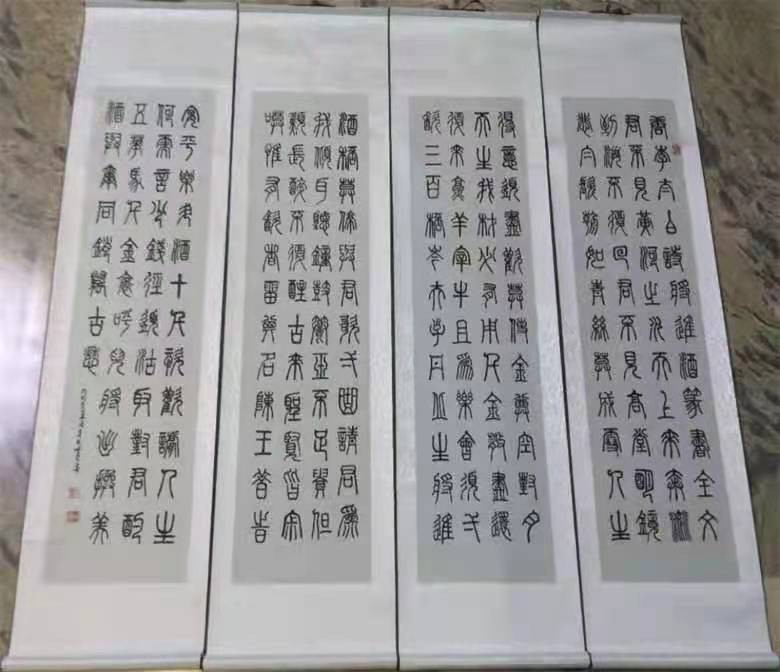 唐李太白詩將進酒篆書全文
君不見黃河之水天上來奔流
到海不復回君不見高堂明鏡
悲白髮朝如青絲暮成雪人生
得意須盡歡莫使金尊空對月
天生我材必有用千金散盡還
復來烹羊宰牛且為樂會須一
飲三百桮岑夫子丹丘生將進
酒桮莫停與君歌一曲請君為
我傾耳聽鐘鼓饌玉不足貴但
願長醉不須醒古來聖賢皆寂
寞惟有飲者留其名陳王昔時
宴平樂斗酒十千恣歡謔主人
何為言少錢徑須沽取對君酌
五華馬千金裘呼兒將出換美
酒與爾同銷萬古愁